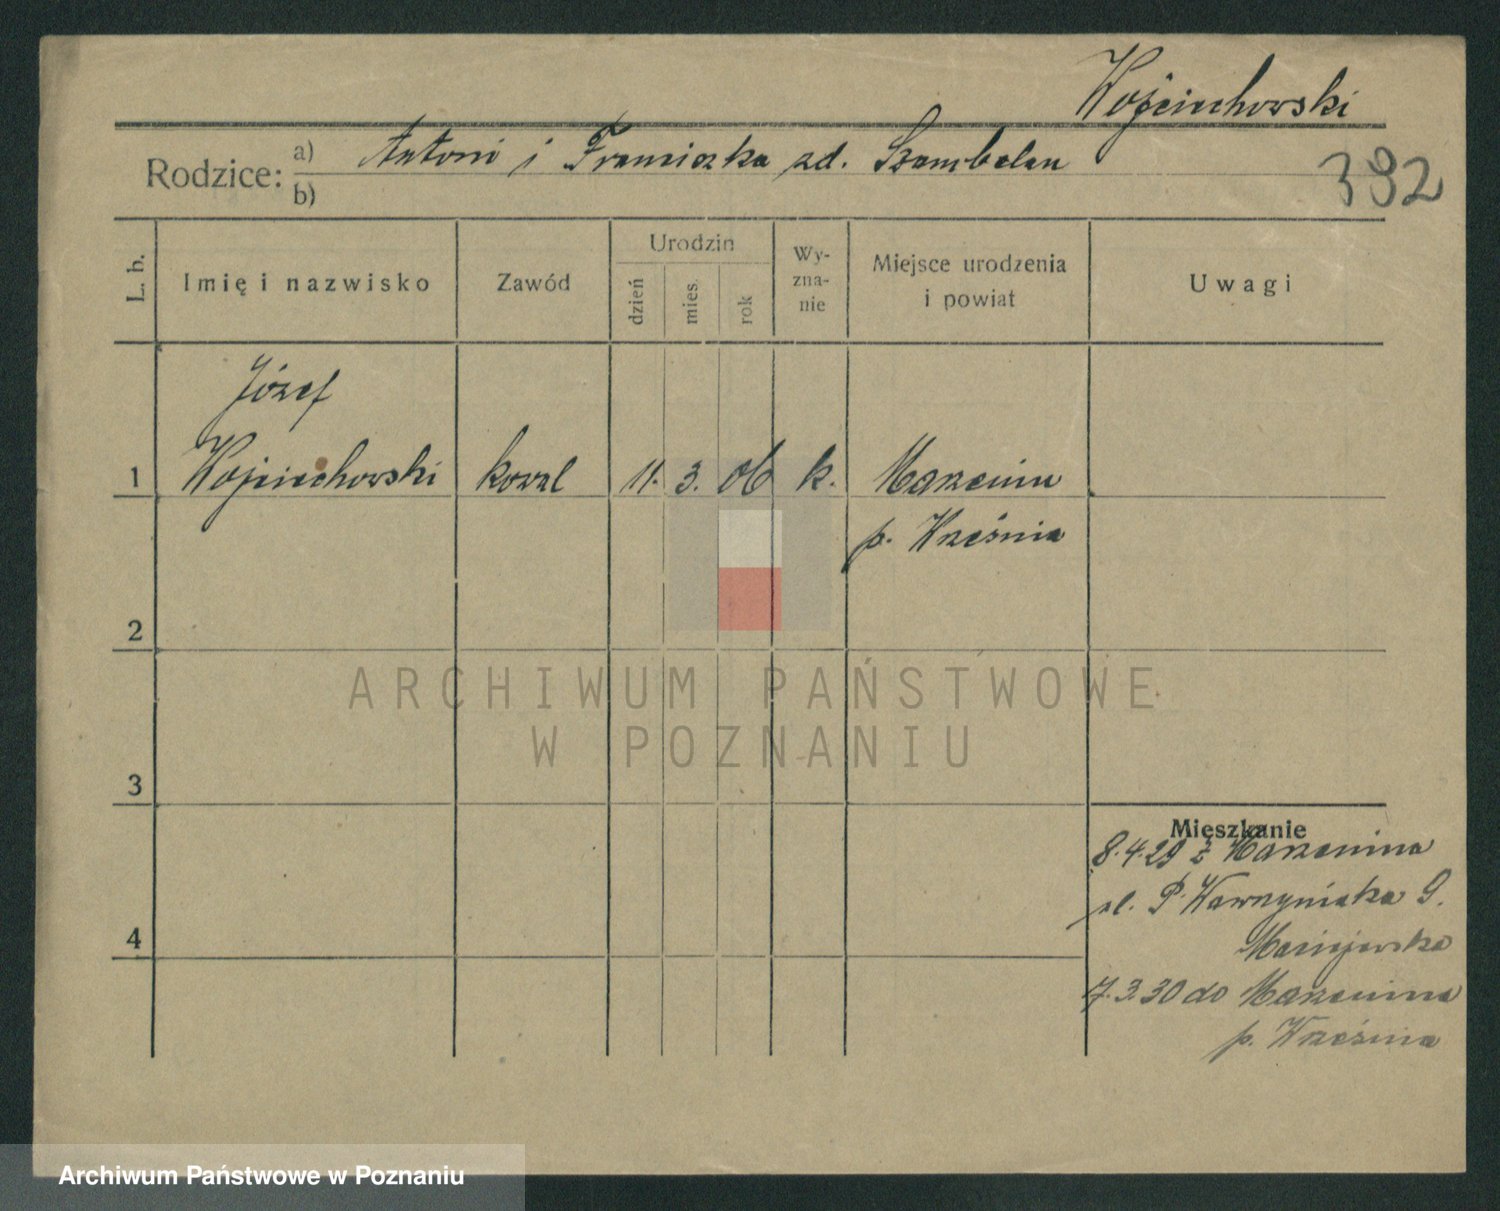 Wojciechowski
Rodzice: a) Antoni i Franciszka zd. Szambelan
b)
392
L. b.
Imię i nazwisko
Zawód
Urodzin
dzień
mies.
rok
Wy-
zna-
nie
Miejsce urodzenia
i powiat
Uwagi
Józef
1 Wojciechowski kowal 11. 3. 06 k. Marzenin
p. Września
2
3
4
Mieszkanie
8.4.29 z Marzenina
ul. P. Wawrzyniaka 9.
Maciejewska
7.3.30 do Marzenina
p. Września
ARCHIWUM PAŃSTWOWE
W POZNANIU
Archiwum Państwowe w Poznaniu